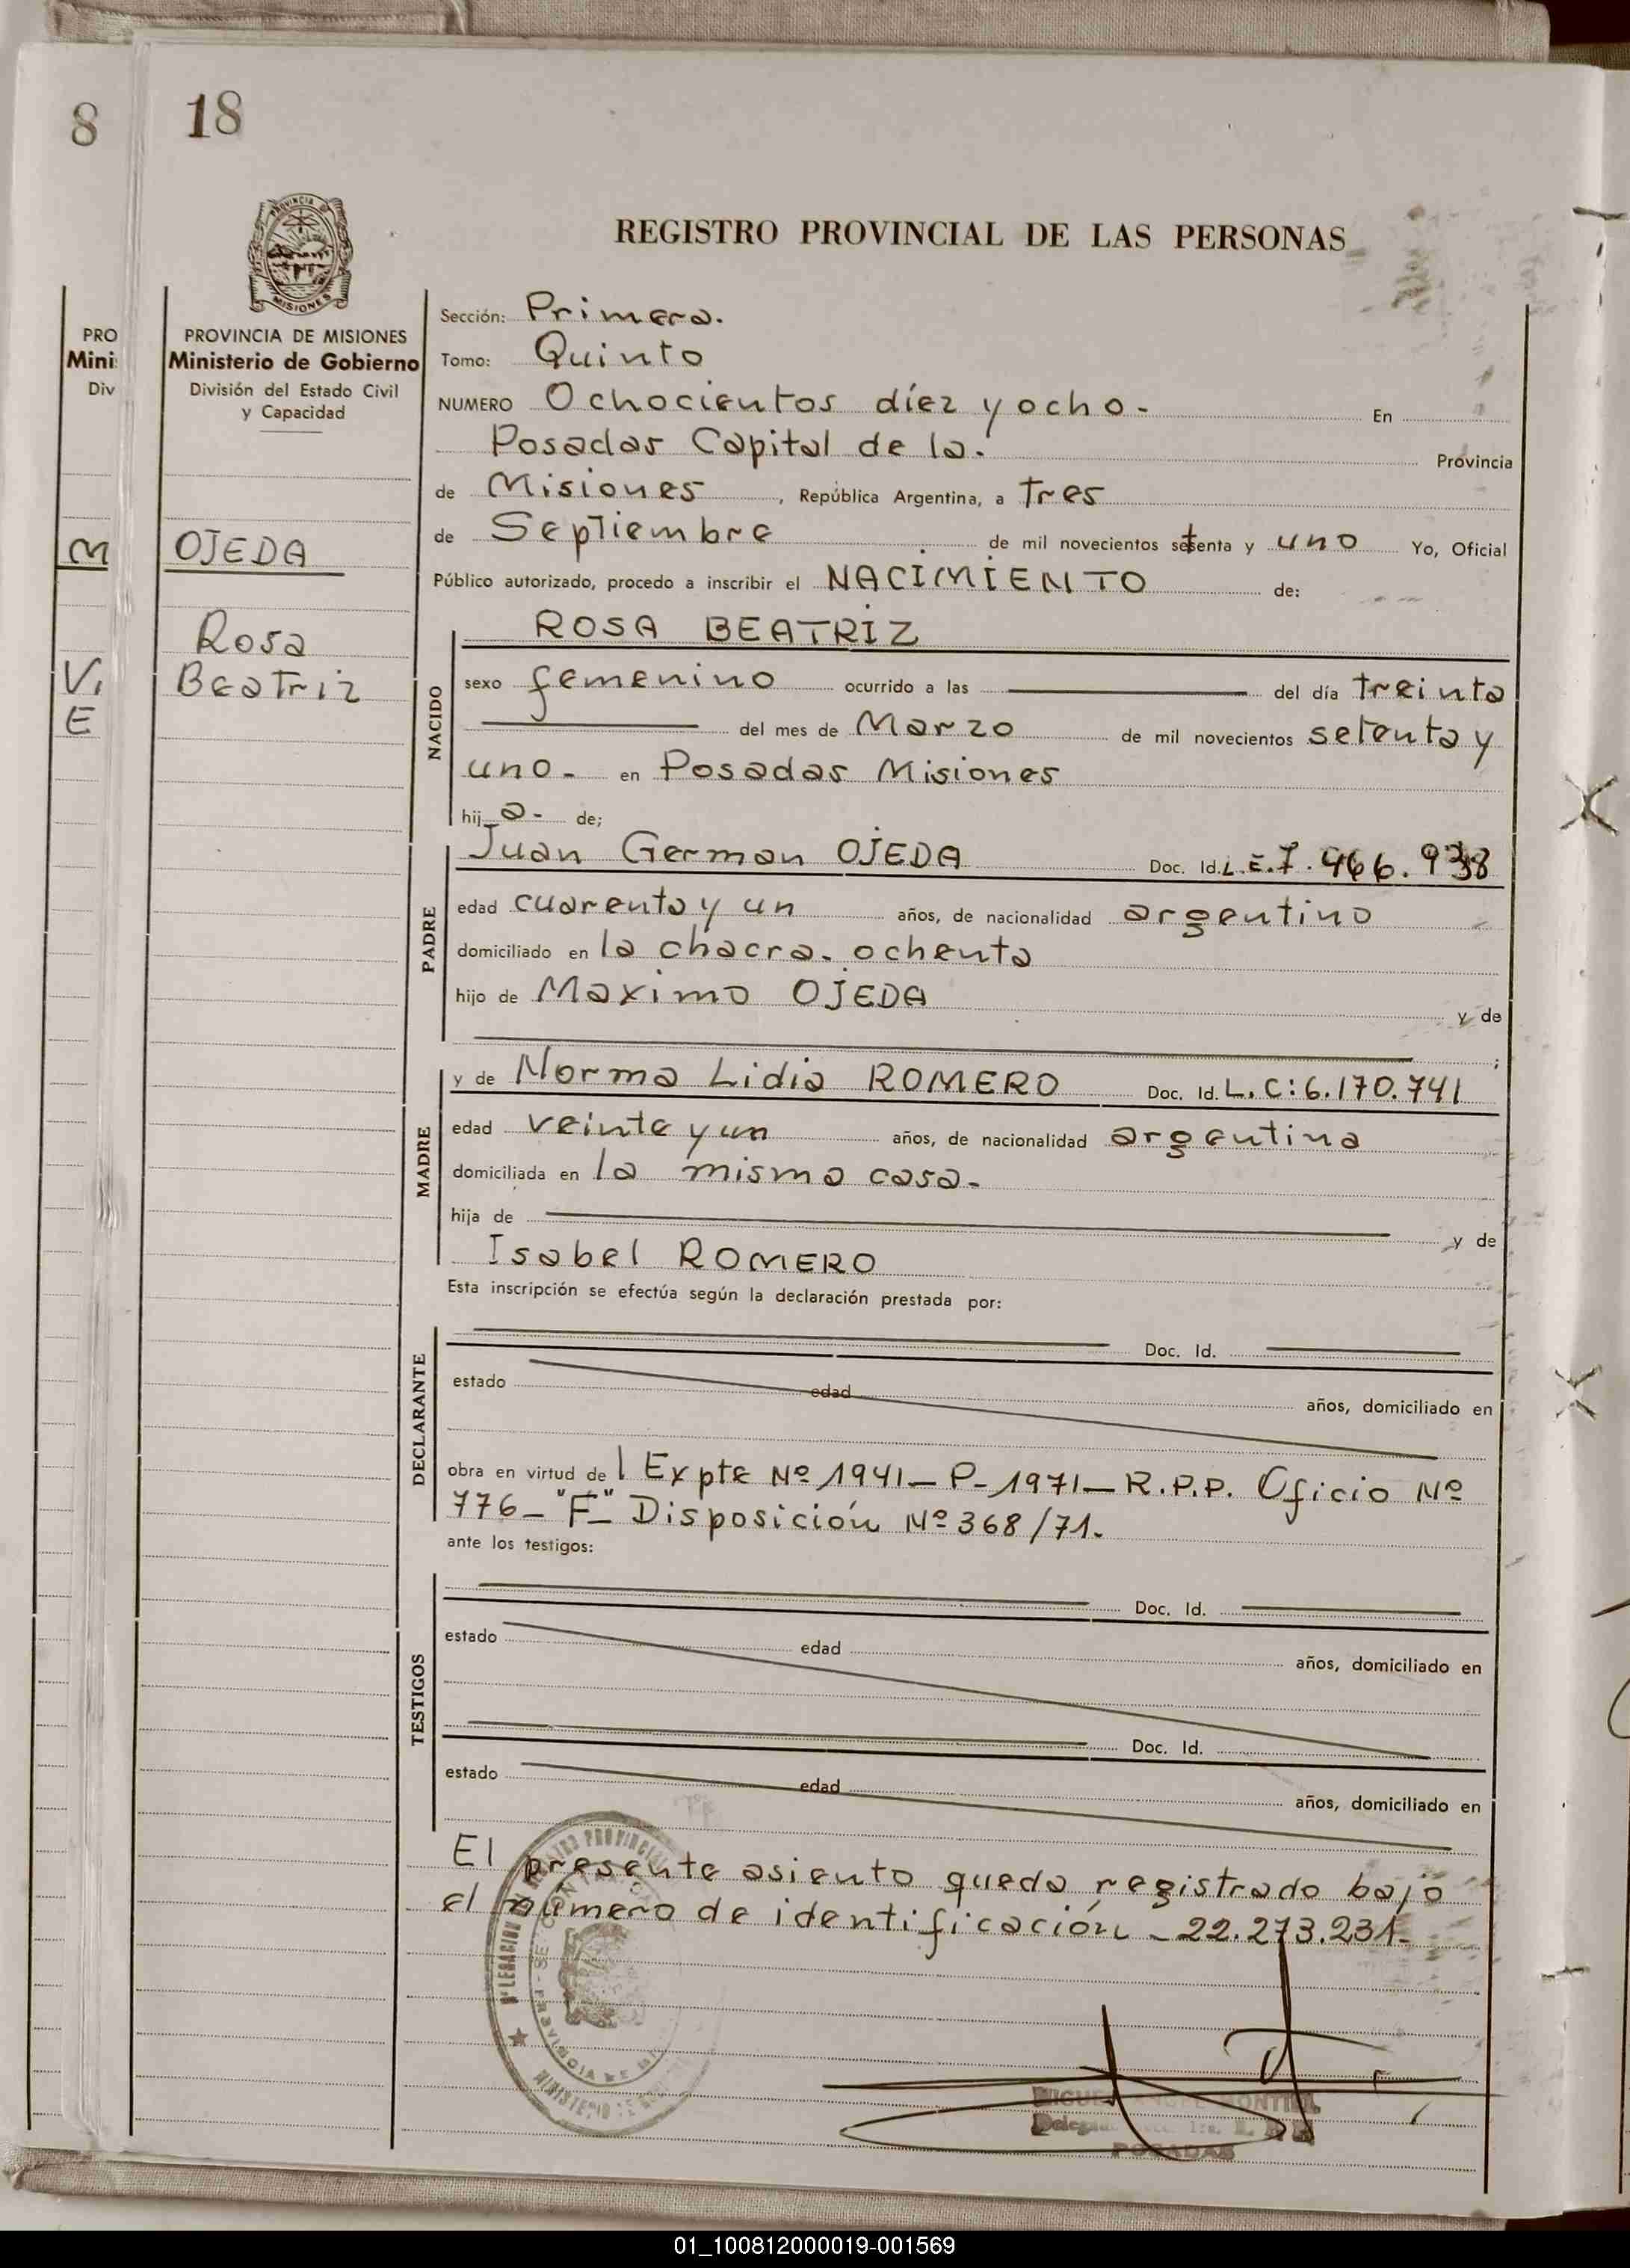 8
18
PROVINCIA DE MISIONES
REGISTRO PROVINCIAL DE LAS PERSONAS
PRO
Mini
Div
PROVINCIA DE MISIONES
Ministerio de Gobierno
División del Estado Civil
y Capacidad
M
OJEDA
Rosa
Beatriz
Vi
E
Sección: Primera.
Tomo: Quinto
NUMERO Ochocientos díez y ocho - En
Posadas Capital de la. Provincia
de Misiones, República Argentina, a tres
de Septiembre de mil novecientos setenta y uno Yo, Oficial
Público autorizado, procedo a inscribir el NACIMIENTO de:
NACIDO
ROSA BEATRIZ
sexo femenino ocurrido a las del día treinta
del mes de Marzo de mil novecientos setenta y
uno. en Posadas Misiones
hij a- de;
PADRE
Juan German OJEDA Doc. Id. L.E.7.466.938
edad cuarenta y un años, de nacionalidad argentino
domiciliado en la chacra. ochenta
hijo de Maximo OJEDA y de
;
MADRE
y de Norma Lidia ROMERO Doc. Id. L.C:6.170.741
edad veinte y un años, de nacionalidad argentina
domiciliada en la misma casa-
hija de y de
Isabel ROMERO
Esta inscripción se efectúa según la declaración prestada por:
DECLARANTE
Doc. Id.
estado edad años, domiciliado en
obra en virtud de l Expte Nº 1941-P-1971-R.P.P. Oficio Nº
776-"F"- Disposición Nº 368/71.
ante los testigos:
TESTIGOS
Doc. Id.
estado edad años, domiciliado en
Doc. Id.
estado edad años, domiciliado en
El presente asiento queda registrado bajo
el número de identificación - 22.273.231-
PROVINCIA DE
POSADAS
01_100812000019-001569